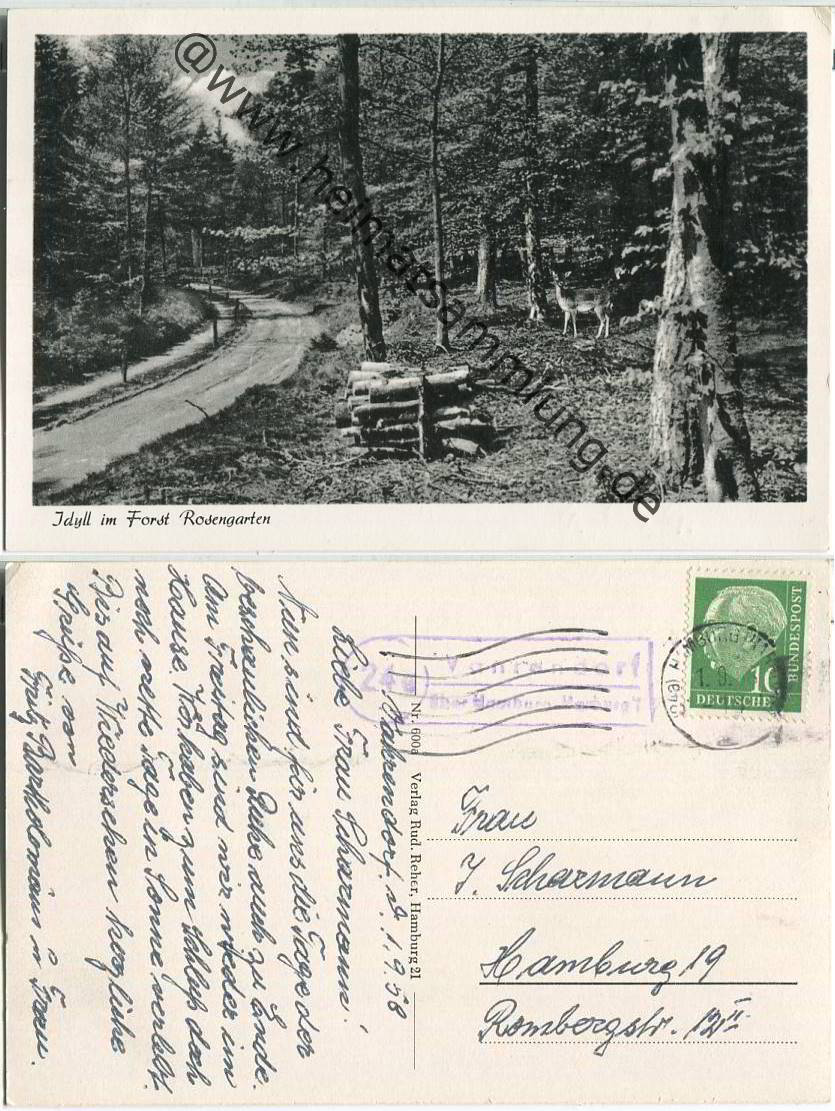 @www.heimatsammlung.de
Idyll im Forst Rosengarten
Vahrendorf, d. 1.9.58
Liebe Frau Scharmann!
Nun sind für uns die Tage der
beschaulichen Ruhe auch zu Ende.
Am Freitag sind wir wieder im
Hause. Wir haben zum Schluß doch
noch nette Tage in Sonne verlebt.
Bis auf Wiedersehen herzliche
Grüße von
Fritz Bartholomäus u. Frau.
Nr. 600a Verlag Rud. Reher, Hamburg 21
(24a) Vahrendorf
über Hamburg-Harburg 1
(24a) HAMBURG
1. 9.
10
DEUTSCHE
BUNDESPOST
Frau
J. Scharmann
Hamburg 19
Rombergstr. 12 II